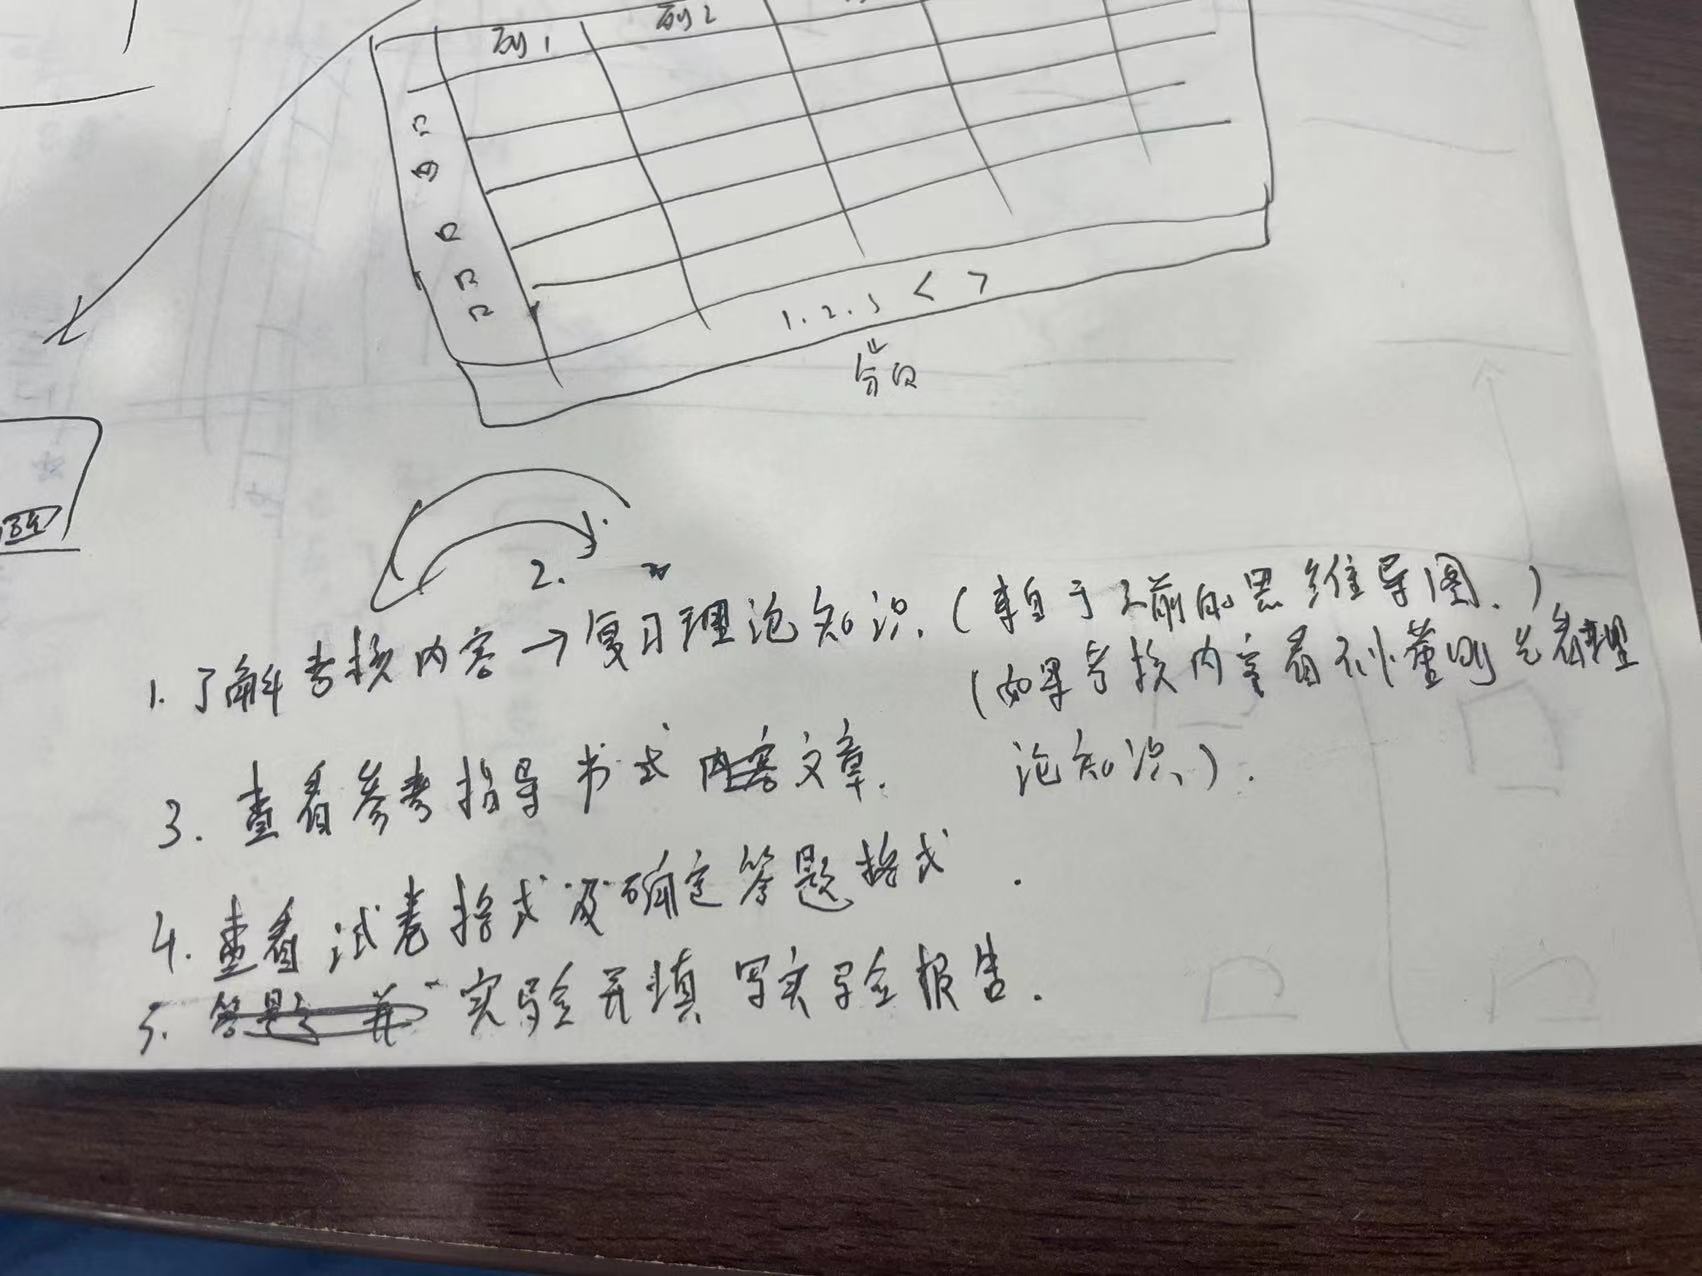 列1 列2
1.2.3 < >
分页
2.
1. 了解考核内容→复习理论知识.(来自于之前的思维导图.)
(如果考核内容看不懂则先看理
论知识.).
3. 查看参考指导书或内容文章.
4. 查看试卷格式及确定答题格式.
5. 实验并填写实验报告.